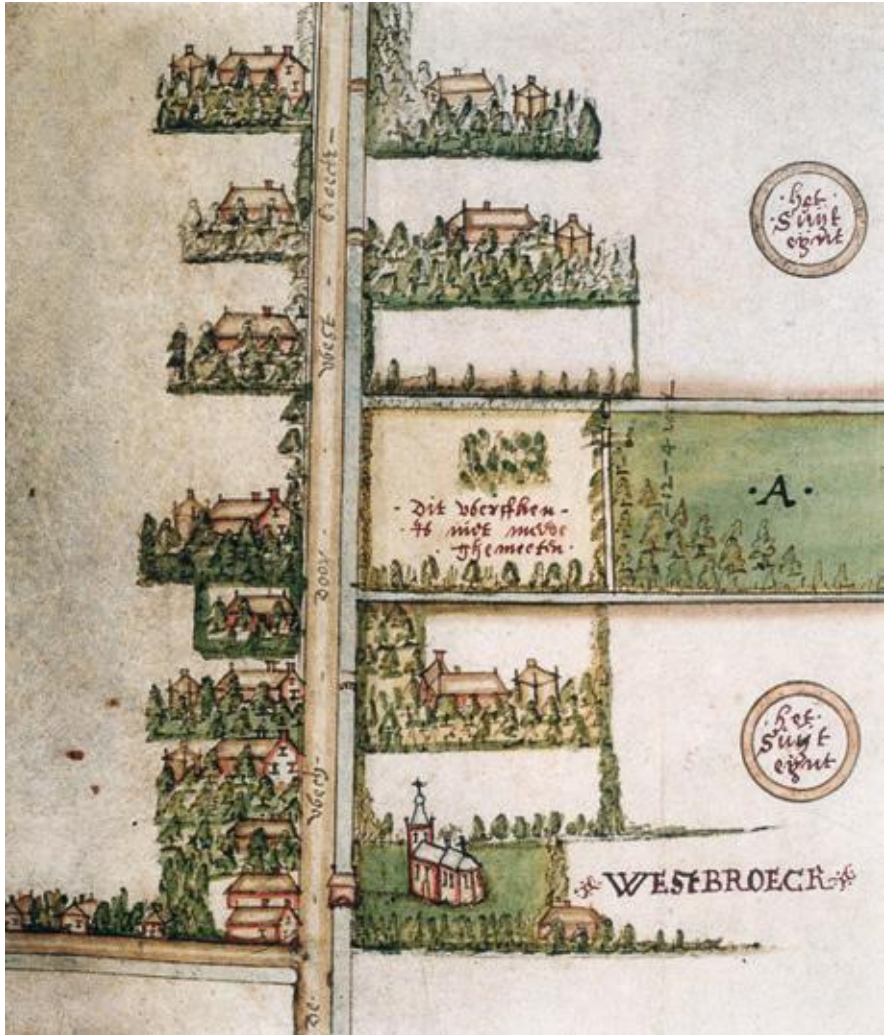 · het ·
· Suyt
eynt
· A ·
· Dit werffken -
is niet mede
· ghemeeten ·
· het ·
Suyt
eynt
WESTBROECK
De · Wech - door - West - broeck -